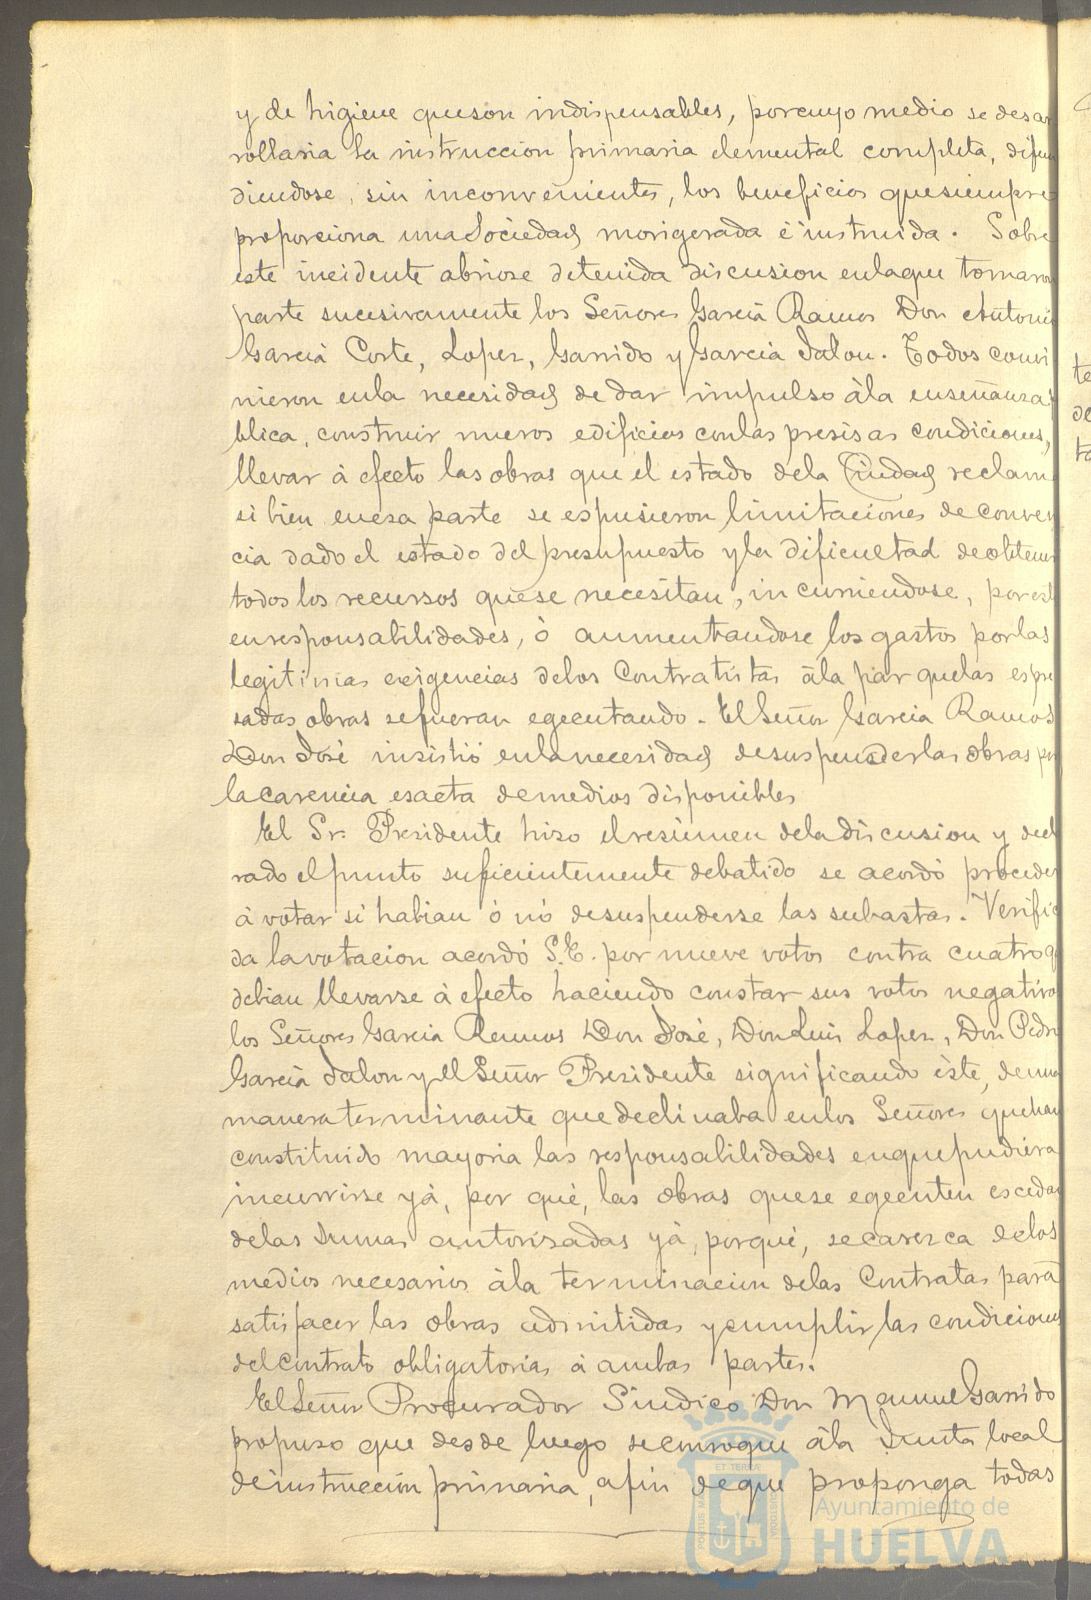 y de higiene que son indispensables, por cuyo medio se desar
rollaria la instruccion primaria elemental completa, difun
diendose, sin inconvenientes, los beneficios que siempre
proporciona una Sociedad morigerada é instruida. Sobre
este incidente abriose detenida discusion en la que tomaron
parte sucesivamente los Señores Garcia Ramos Don Antonio
Garcia Corte, Lopez, Garrido y Garcia Jalon. Todos convi
nieron en la necesidad de dar impulso á la enseñanza
blica, construir nuevos edificios con las presisas condiciones,
llevar á efecto las obras que el estado de la Ciudad reclam
si bien en esa parte se espusieron limitaciones de conven
cia dado el estado del presupuesto y la dificultad de obtener
todos los recursos que se necesitan, incurriendose, por est
en responsabilidades, ó aumentandose los gastos por las
legitimas exigencias de los Contratistas á la par que las espre
sadas obras se fueran egecutando. El Señor Garcia Ramos
Don José insistió en la necesidad de suspender las obras por
la carencia esacta de medios disponibles
El Sr. Presidente hizo el resúmen de la discusion y decl
rado el punto suficientemente debatido se acordó proceder
á votar si habian ó nó de suspenderse las subastas. Verific
da la votacion acordó S.E. por nueve votos contra cuatro q
debian llevarse á efecto haciendo constar sus votos negativos
los Señores Garcia Ramos Don José, Don Luis Lopez, Don Pedro
Garcia Jalon y el Señor Presidente significando éste, de una
manera terminante que declinaba en los Señores que han
constituido mayoria las responsabilidades en que pudiera
incurrirse yá, por qué, las obras que se egecuten escedan
de las sumas autorisadas yá, porqué, se caresca de los
medios necesarios á la terminacion de las Contratas para
satisfacer las obras admitidas y cumplir las condiciones
del contrato obligatorias á ambas partes.
El Señor Procurador Sindico Don Manuel Garrido
propuso que desde luego se convoque á la Junta local
de instruccion primaria, a fin de que proponga todas
Ayuntamiento de
HUELVA